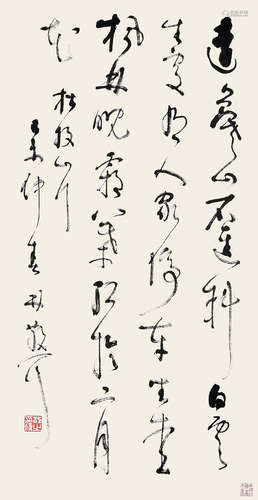 遠上寒山石逕斜白雲
生處有人家停車坐愛
楓林晚霜葉紅於二月
花 杜牧山行
己未仲春林散耳